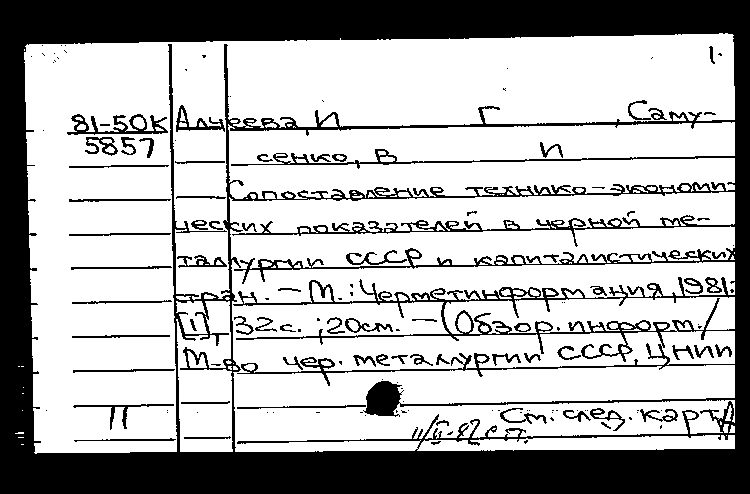 1.
81-50К Алчеева, И Г , Саму-
5857 сенко, В И
Сопоставление технико-экономи-
ческих показателей в черной ме-
таллургии СССР и капиталистических
стран. – М. : Черметинформация, 1981.
[1], 32с. ; 20см. – (Обзор. информ. /
М-во чер. металлургии СССР, ЦНИИ
11 См. след. карт.